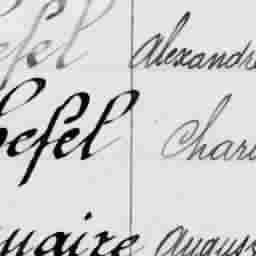 efel Alexandre
hefel Charl
uaire Auguss